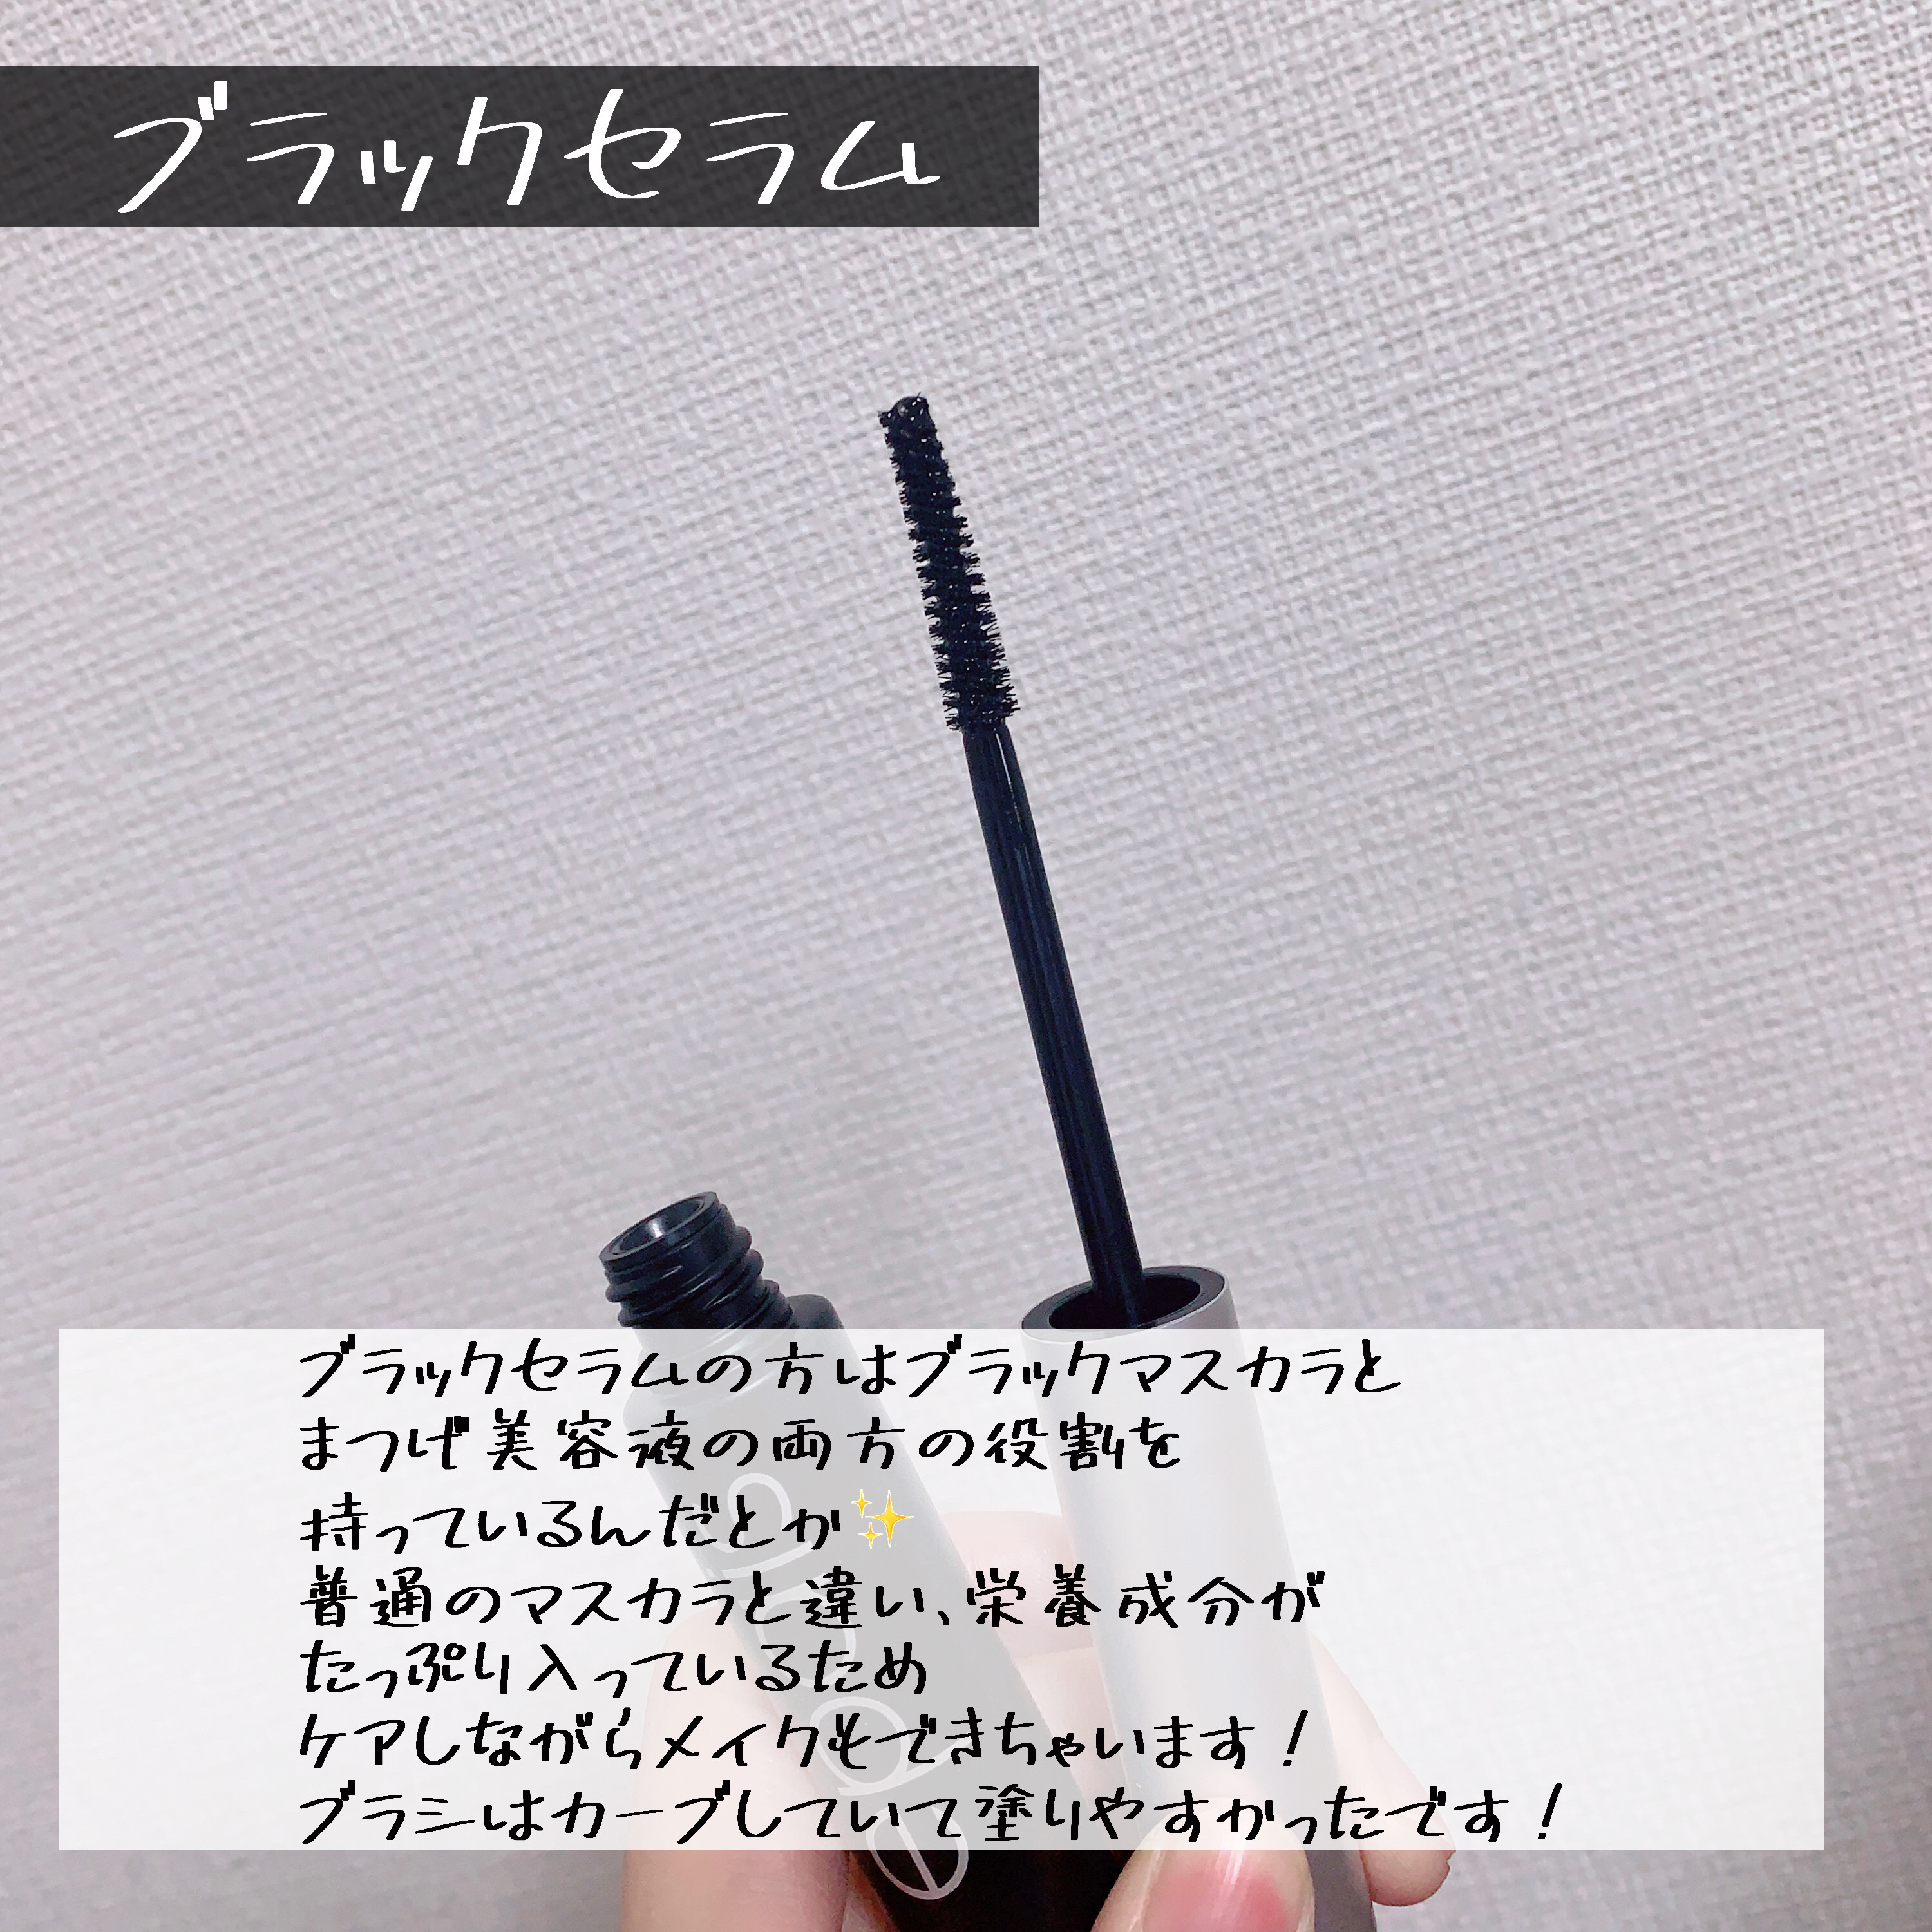 ブラックセラム
ブラックセラムの方はブラックマスカラと
まつげ美容液の両方の役割を
持っているんだとか✨
普通のマスカラと違い、栄養成分が
たっぷり入っているため
ケアしながらメイクもできちゃいます!
ブラシはカーブしていて塗りやすかったです!